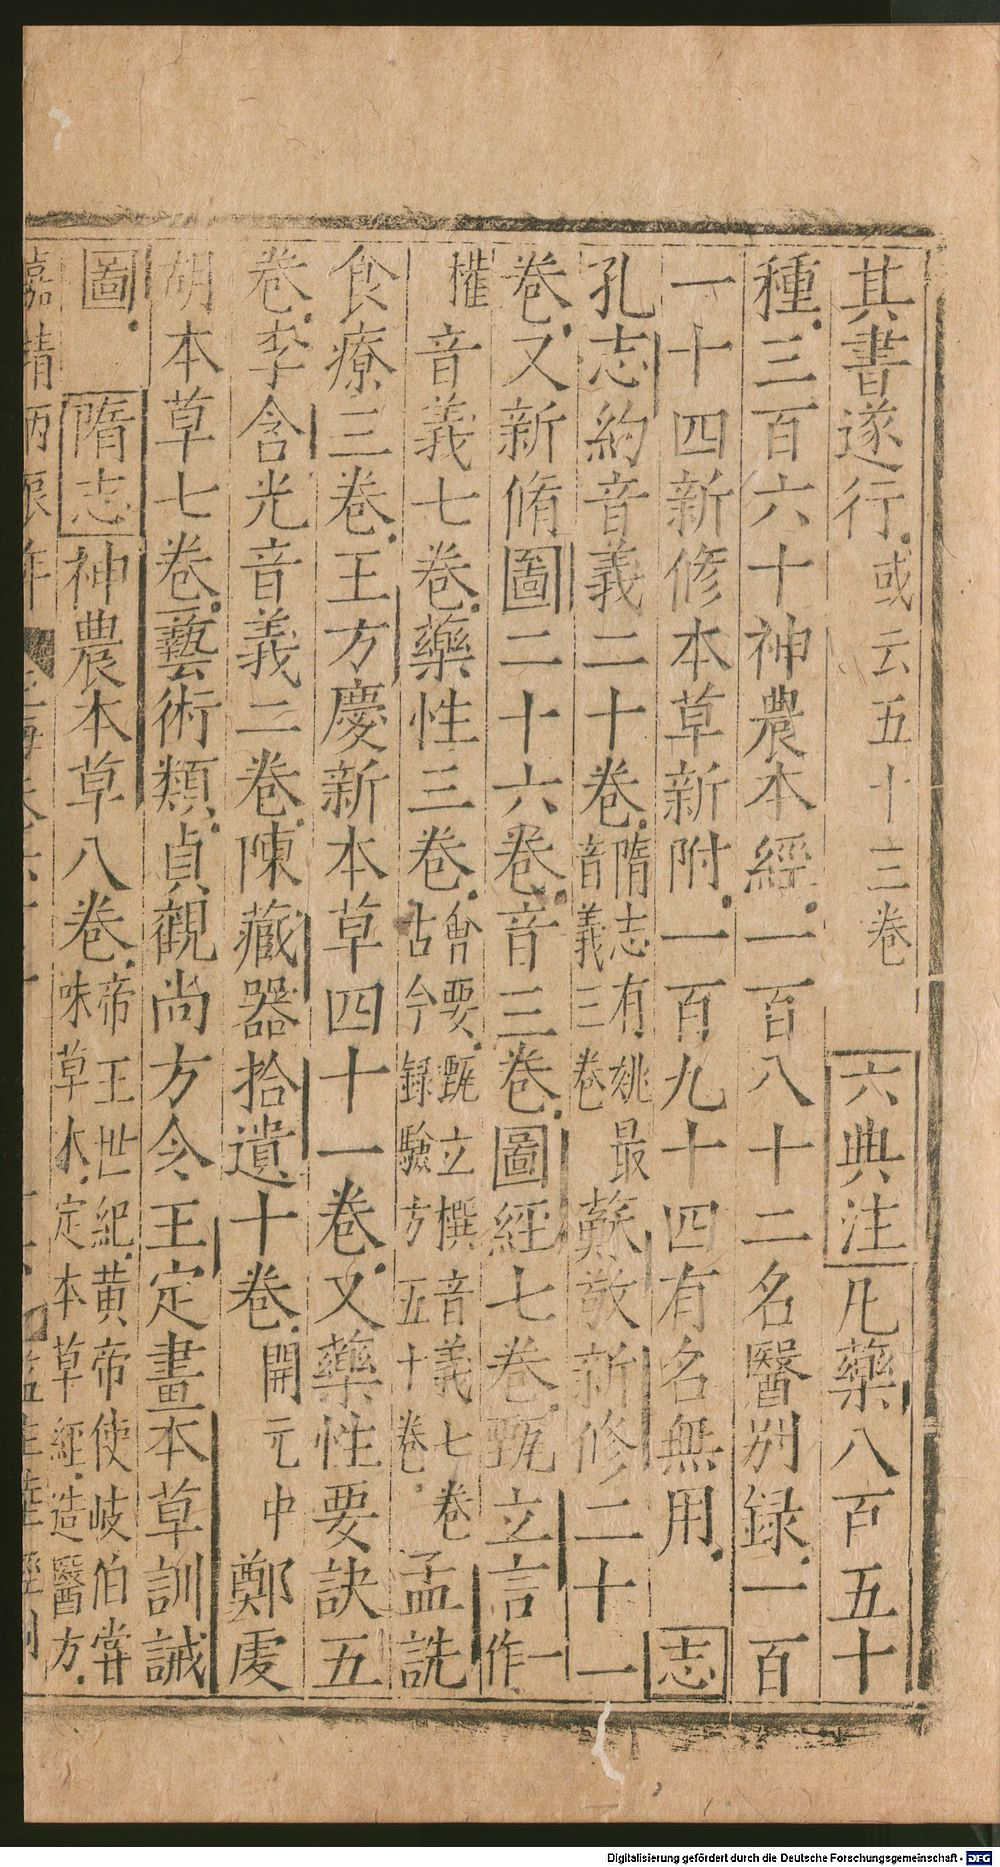 其書遂行或云五十三卷 六典注凡藥八百五十
種三百六十神農本經一百八十二名醫别録一百
一十四新修本草新附一百九十四有名無用 志
孔志約音義二十卷隋志有姚最
音義三卷
蘇敬新修二十一
卷又新脩圖二十六卷音三卷圖經七卷甄立言一
作
權音義七卷藥性三卷會要甄立撰音義七卷
古今録驗方五十卷
孟詵
食療三卷王方慶新本草四十一卷又藥性要訣五
卷李含光音義二卷陳藏器拾遺十卷開元中鄭虔
胡本草七卷藝術類貞觀尚方令王定畫本草訓誡
圖 隋志神農本草八卷帝王世紀黄帝使岐伯甞
味草木定本草經造醫方
Digitalisierung gefördert durch die Deutsche Forschungsgemeinschaft - DFG